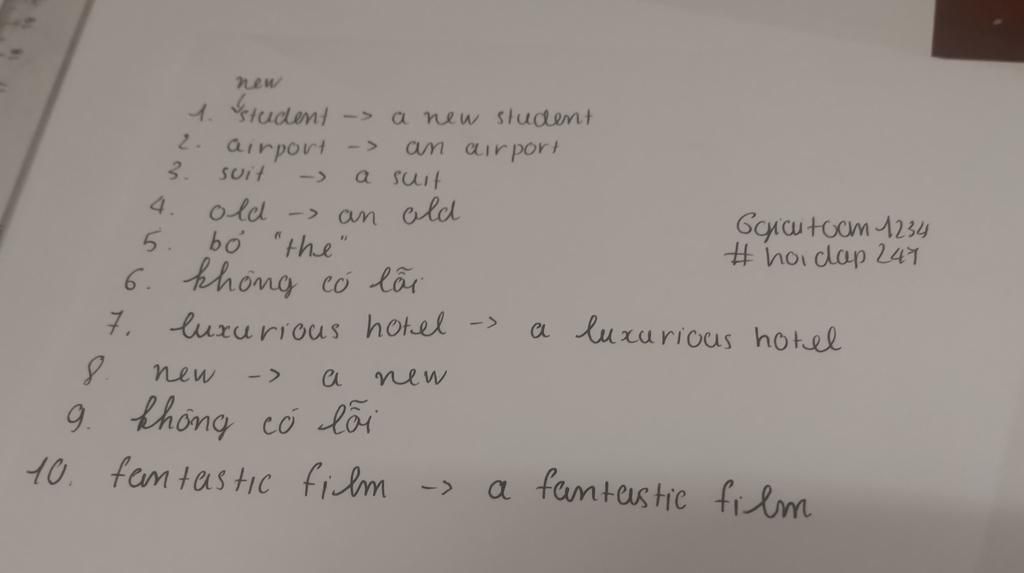 new
1. student -> a new student
2. airport -> an airport
3. suit -> a suit
4. old -> an old
5. bỏ "the"
6. không có lỗi
7. luxurious hotel -> a luxurious hotel
8. new -> a new
9. không có lỗi
10. fantastic film -> a fantastic film
# hoidap247